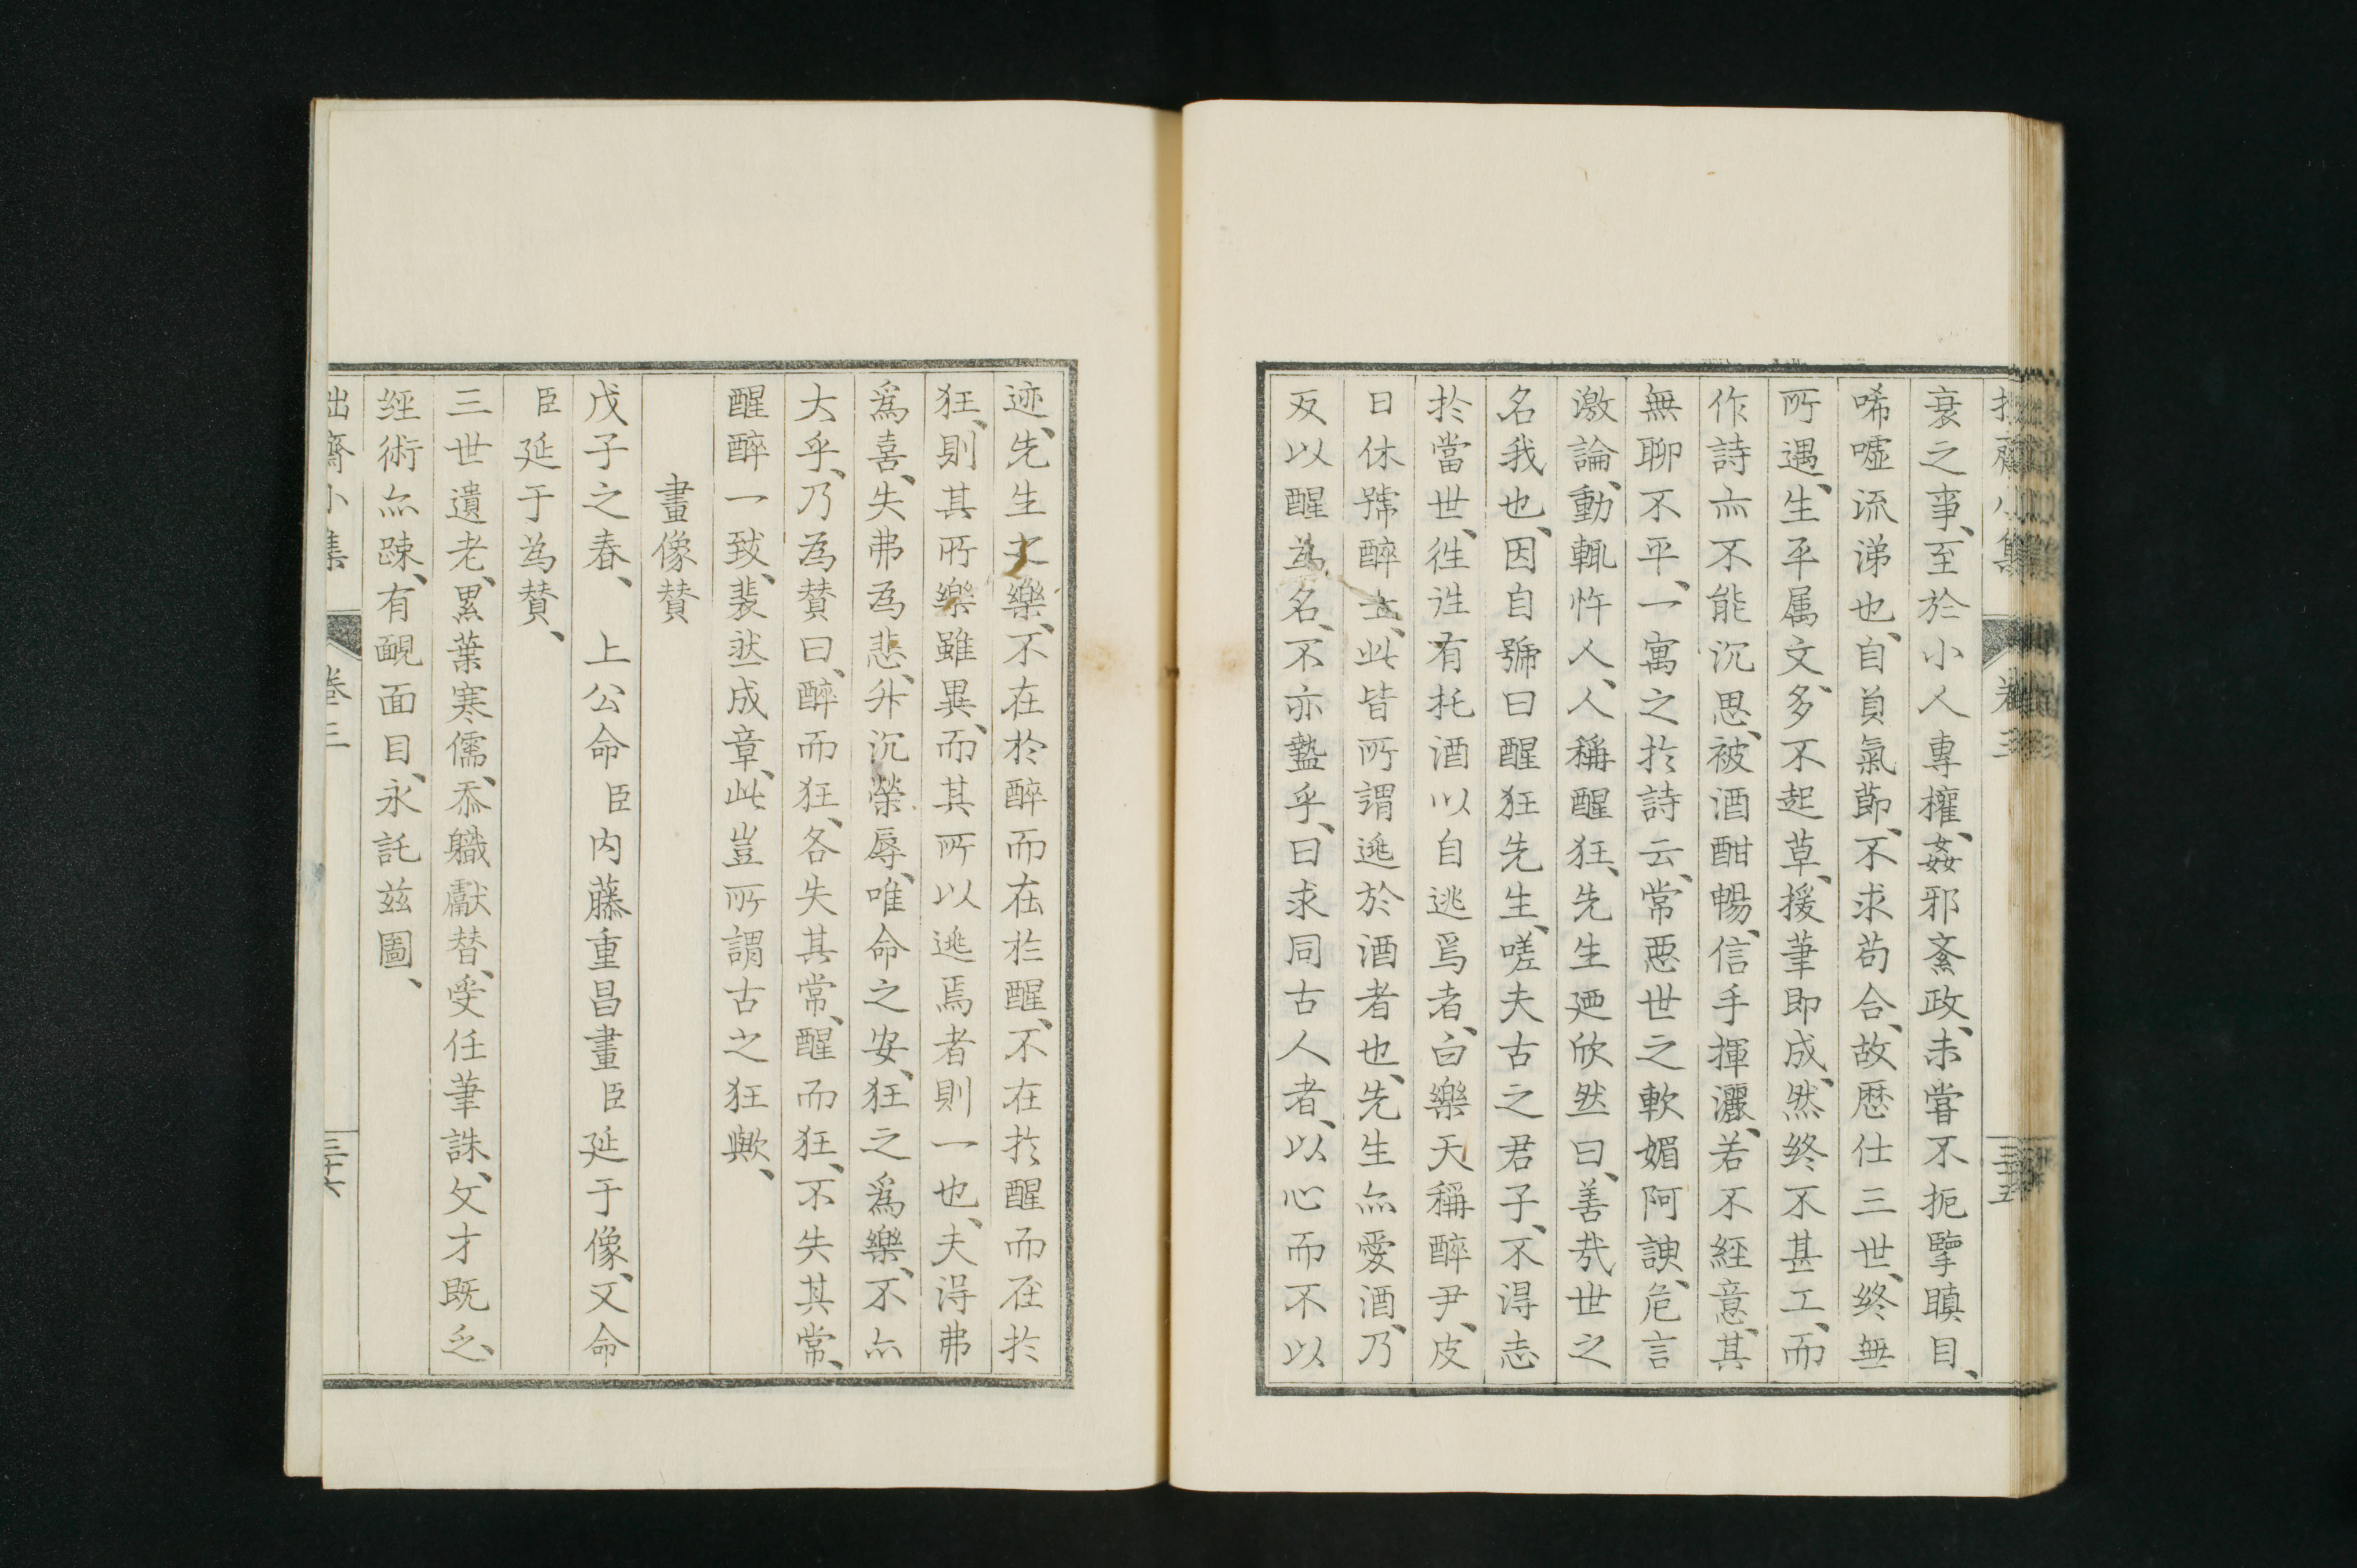 衰之事、至於小人專權、姦邪紊政、未嘗不扼掔瞋目、
唏噓流涕也、自負氣節、不求苟合、故歷仕三世、終無
所遇、生平属文、多不起草、援筆即成、然終不甚工、而
作詩亦不能沉思、被酒酣暢、信手揮灑、若不經意、其
無聊不平、一寓之於詩云、常惡世之軟媚阿諛、危言
激論、動輒忤人、人稱醒狂、先生廼欣然曰、善哉世之
名我也、因自號曰醒狂先生、嗟夫古之君子、不得志
於當世、徃徃有托酒以自逃焉者、白樂天稱醉尹、皮
日休號醉士、此皆所謂逃於酒者也、先生亦愛酒、乃
反以醒為名、不亦盭乎、曰求同古人者、以心而不以
迹、先生之樂、不在於醉而在於醒、不在於醒而在於
狂、則其所樂雖異、而其所以逃焉者則一也、夫得弗
爲喜、失弗為悲、升沉榮辱、唯命之安、狂之爲樂、不亦
大乎、乃為賛曰、醉而狂、各失其常、醒而狂、不失其常、
醒醉一致、裴然成章、此豈所謂古之狂歟、
畫像賛
戊子之春、 上公命臣内藤重昌畫臣延于像、又命
臣延于為賛、
三世遺老、累葉寒儒、忝職獻替、受任筆誅、文才既乏、
經術亦踈、有靦面目、永託茲圖、
拙齋小集 卷三 三十六